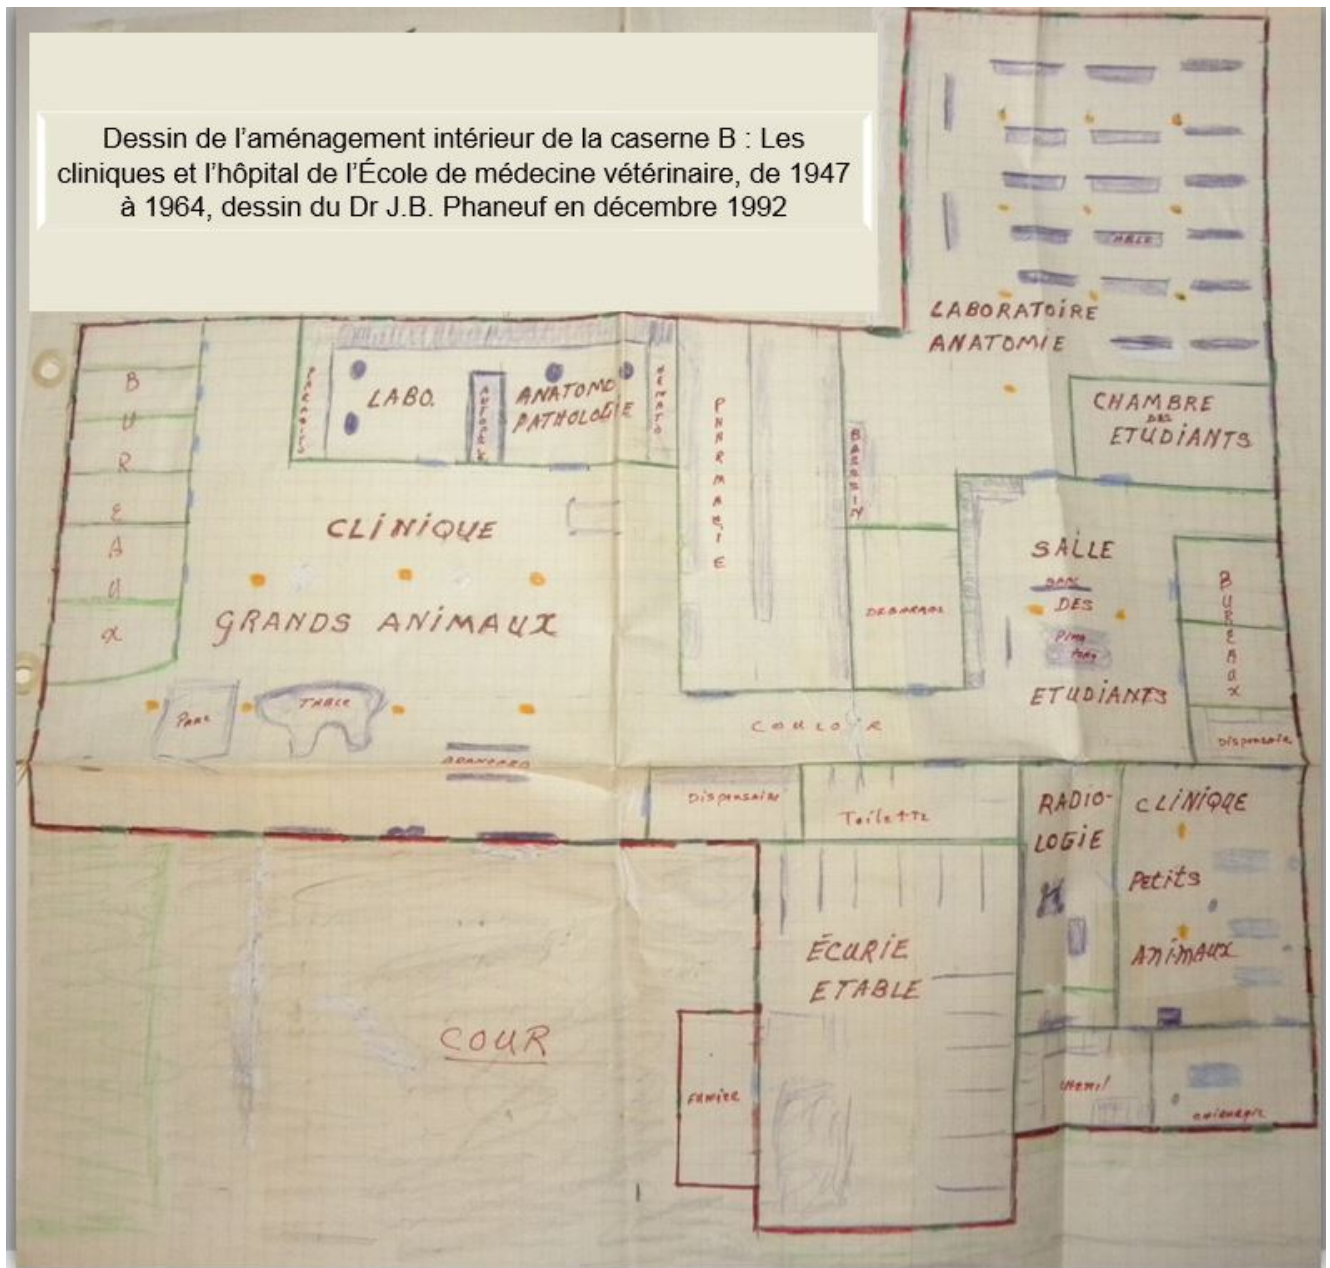 Dessin de l'aménagement intérieur de la caserne B : Les
cliniques et l'hôpital de l'École de médecine vétérinaire, de 1947
à 1964, dessin du Dr J.B. Phaneuf en décembre 1992
TABLE
LABORATOIRE
ANATOMIE
CHAMBRE
DES
ETUDIANTS
BUREAUX
PARASITO
LABO.
AUTOPSIE
ANATOMO
PATHOLOGIE
HEMATO
PHARMACIE
BASSIN
CLINIQUE
GRANDS ANIMAUX
DEBARRAS
SALLE
DES
Ping
Pong
ETUDIANTS
BUREAUX
Dispensaire
PARC
TABLE
COULOIR
Dispensaire
Toilette
RADIO-
LOGIE
CLINIQUE
Petits
ANIMAUX
ÉCURIE
ETABLE
COUR
FUMIER
chirurgie